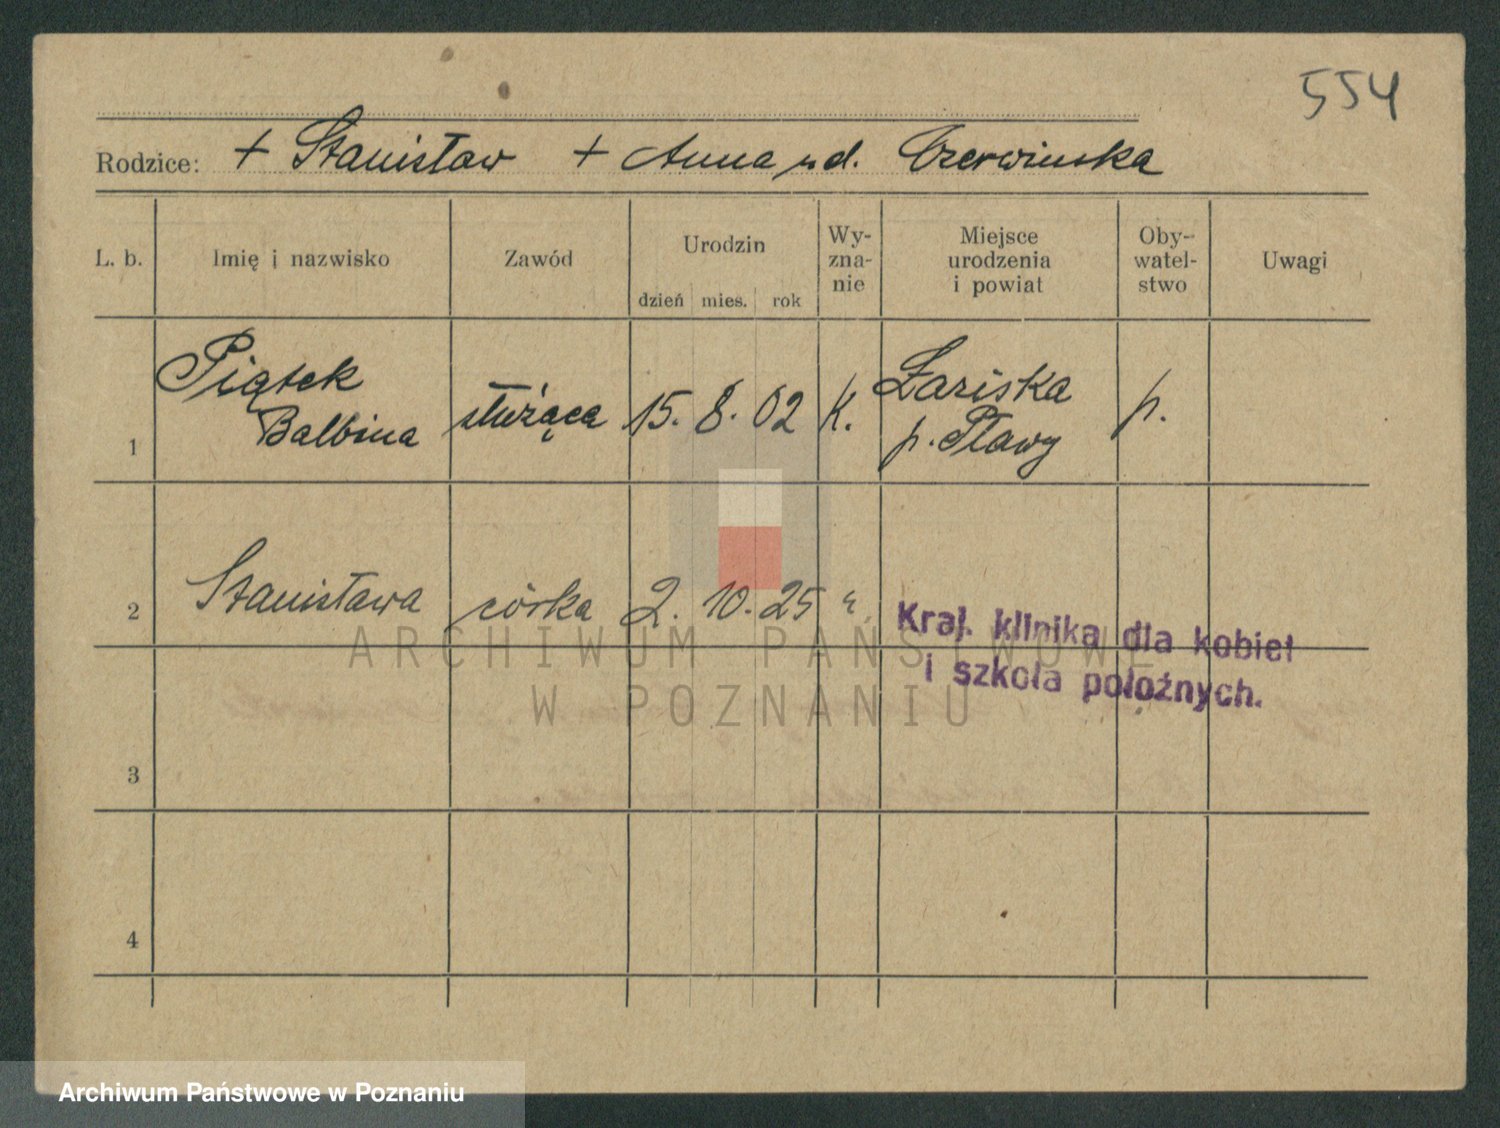 554
Rodzice: + Stanisław + Anna ud. Czerwinska
L. b.
Imię i nazwisko
Zawód
Urodzin
dzień mies. rok
Wy-
zna-
nie
Miejsce
urodzenia
i powiat
Oby-
watel-
stwo
Uwagi
1
Piątek
Balbina
służąca
15. 8. 02
K.
Łaziska
p.
2
Stanisława
córka
2. 10. 25
Kraj. klinika dla kobiet
i szkoła położnych.
3
4
ARCHIWUM PAŃSTWOWE
W POZNANIU
Archiwum Państwowe w Poznaniu